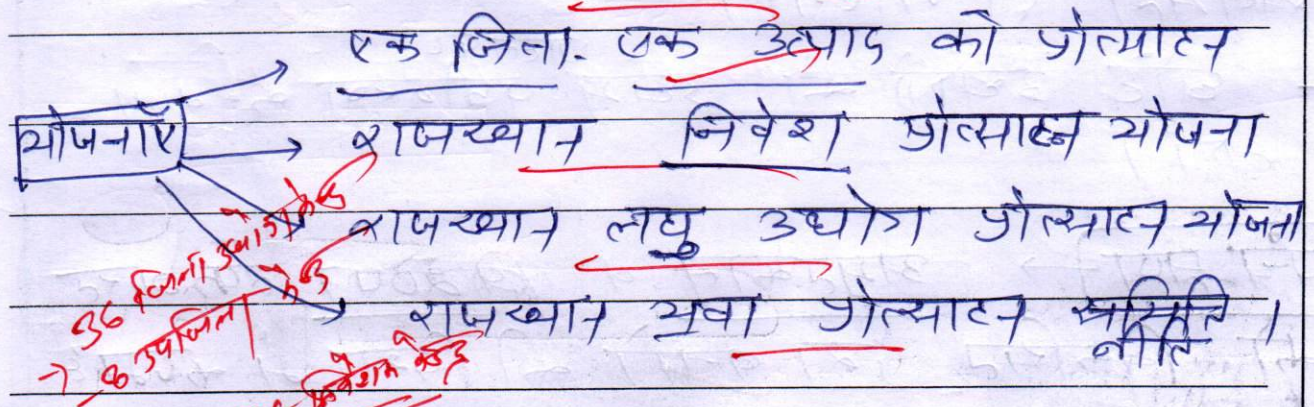 एक जिला- एक उत्पाद को प्रोत्साहन
योजनाएँ
राजस्थान निवेश प्रोत्साहन योजना
राजस्थान लघु उद्योग प्रोत्साहन योजना
राजस्थान युवा प्रोत्साहन समिति नीति ।
36 जिला उद्योग केंद्र
→ 8 उपजिला केंद्र